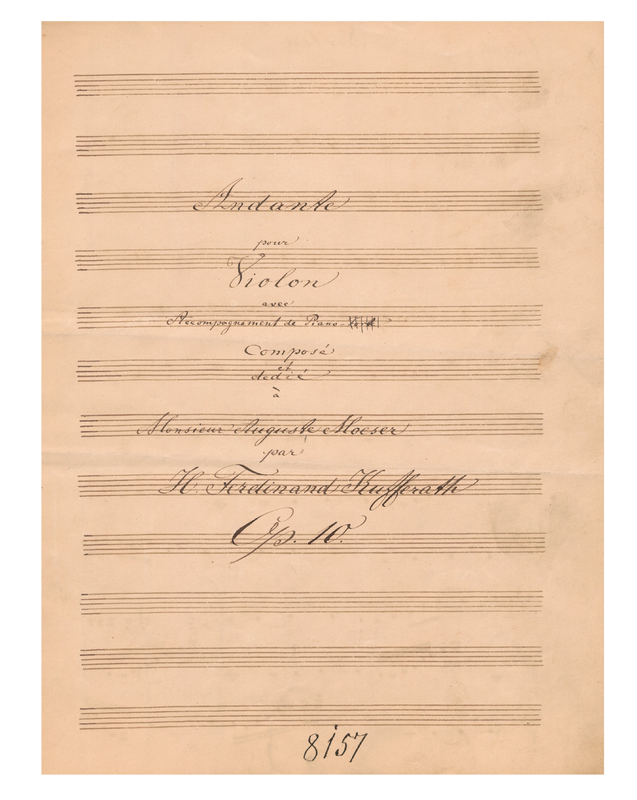 Andante
pour
Violon
avec
Accompagnement de Piano
Composé
et
dedié
à
Monsieur Auguste Moeser
par
H. Ferdinand Kufferath
Op. 10.
8157